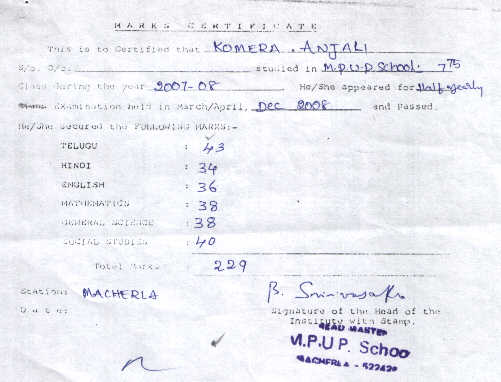 MARKS CERTIFICATE
This is to Certified that KOMERA . ANJALI
S/o. D/o. studied in M.P.U.P School. 7th
Class during the year 2007-08 He/She appeared for Half yearly
Examination held in March/April, Dec 2008 and Passed.
He/She secured the FOLLOWING MARKS:-
TELUGU : 43
HINDI : 34
ENGLISH : 36
MATHEMATICS : 38
GENERAL SCIENCE : 38
SOCIAL STUDIES : 40
Total Marks 229
Station: MACHERLA
Date:
Signature of the Head of the
Institute with Stamp.
HEAD MASTER
M.P.U.P. Schoo
MACHERLA - 522426